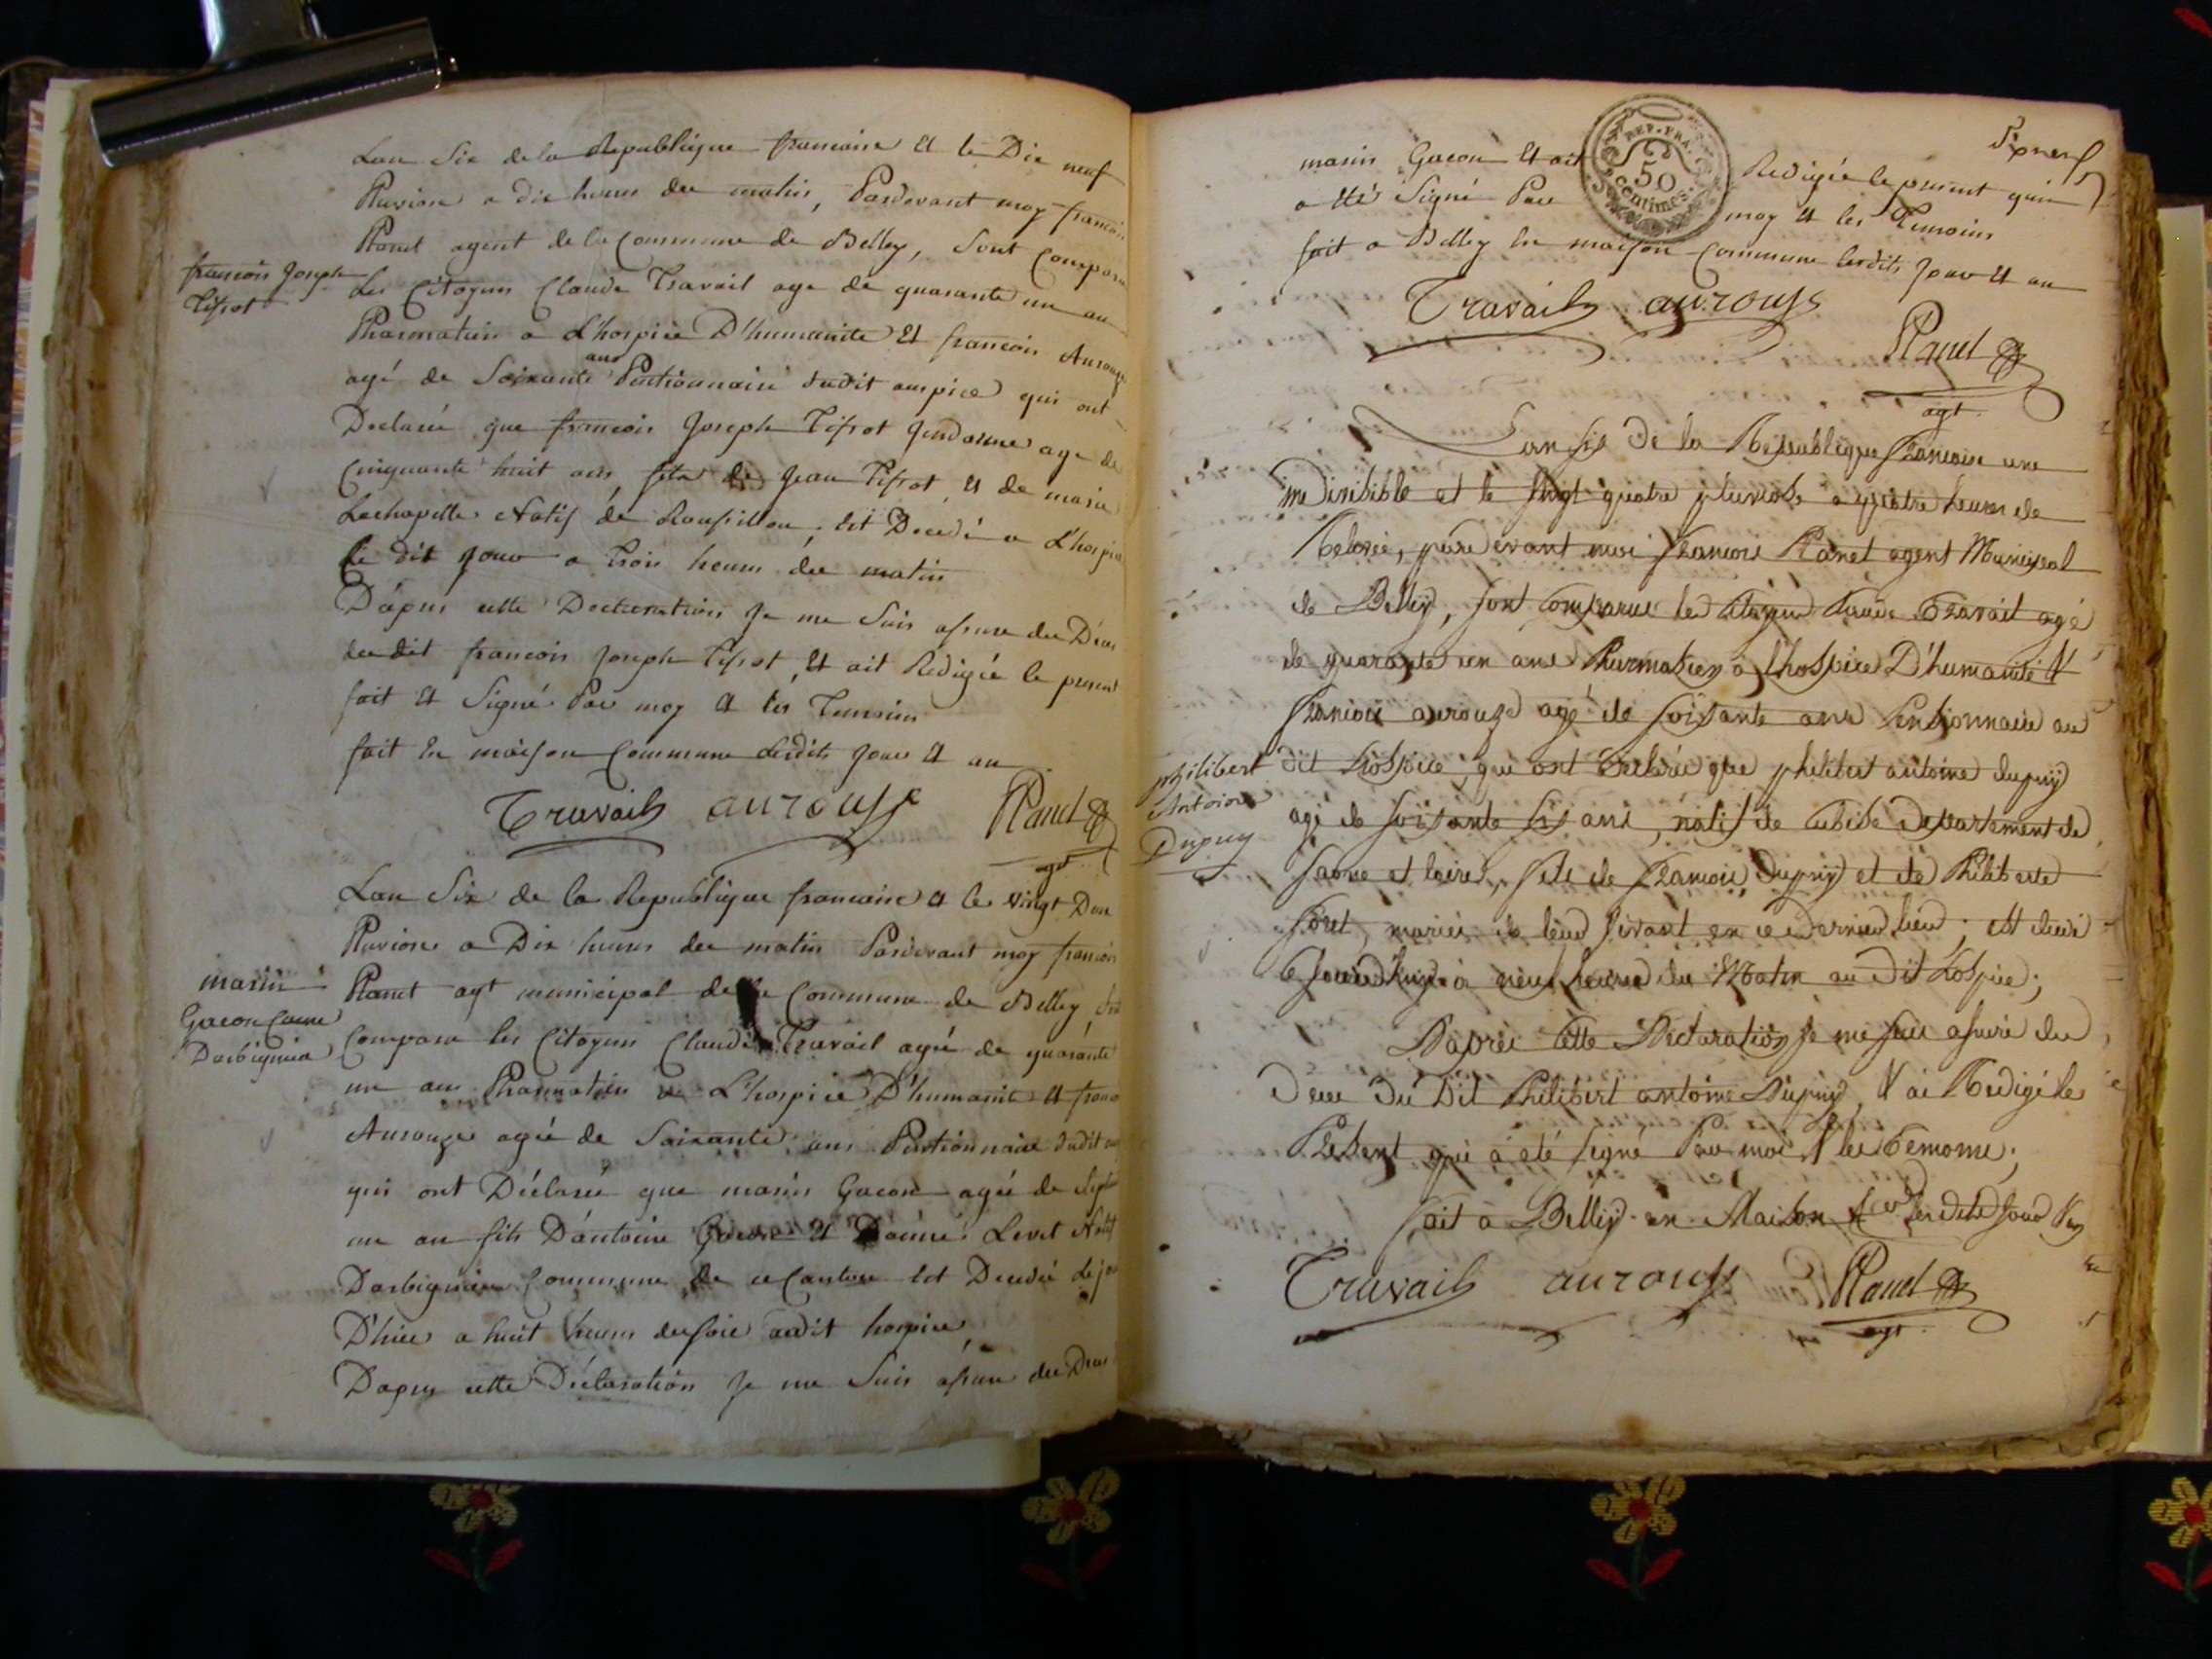 Lan Six de la Republique francaise et le Dix neuf
Pluviose a dix heures du matin, Pardevant moy francois
Planet agent de la Commune de Belley, Sont Comparu
francois Joseph
Tissot
Les Citoyens Claude Travail age de quarante un an
Pharmatien a L'hospice D'humanite et francois Aurouze
agé de Soixante ans Pentionnaire dudit auspice qui ont
Declaré que francois Joseph Tissot Gendarme age de
Cinquante huit ans, fils de Jean Tissot, et de marie
Lachapelle Natif de Rousillon, Est Décedé a L'hospice
Le dit Jour a trois heures du matin
D'apres cette Declaration Je me Suis assure du Déces
du dit francois Joseph Tissot, et ait Redigée le present
fait et Signé Par moy et les Temoins
fait En maison Commune Lesdits Jour et an
Travail aurouze Planet
agt
Lan Six de la Republique francaise et le vingt Deux
Pluviose a Dix heures du matin Pardevant moy francois
marin
Gacon
Darbignieu
Planet agt municipal de la Commune de Belley
Comparu les Citoyens Claude Travail agé de quarante
un ans Pharmatien a L'hospice D'humanité et
Aurouze agée de Soixante ans Pentionnaire dudit
qui ont Déclaré que marin Gacon agé de
un an fils D'antoine Gacon et D'aimé Levet Natif
Darbignieu Commune de ce Canton Est Decedé
D'hier a huit heures du soir audit hospice
Dapres cette Déclaration Je me Suis assure du Deces
marin Gacon et ait Redigée le present qui
a étté Signé Par moy et les Temoins
fait a Belley En maison Commune lesdits Jour et an
REP. FRA.
50
centimes
Travail aurouze
Planet
agt
Lan six de la République Francaise une
indivisible et le vingt quatre pluviose a quatre heures de
Relevée, pardevant moi Francois Planet agent Municipal
de Belley, sont Comparus les Citoyens Claude Travail agé
de quarante un ans Pharmatien à l'hospice D'humanité et
Francois aurouze agé de soixante ans Pensionnaire au
philibert
Antoine
Dupuy
dit hospice, qui ont Declaré que philibert antoine dupuy
agé de soixante six ans, natif de Département de
saone et loire, fils de Francois Dupuy et de Philiberte
marié de leur vivant en ce dernier lieu; est décédé
ce Jourdhuy à neuf heures du Matin au dit hospice;
D'après Cette Déclaration je me suis assuré du
Deces du dit Philibert antoine Dupuy, et ai Redigé le
Present qui a été signé Par moi et les Temoins;
fait à Belley en Maison Cne lesdits jour et an
Travail aurouze Planet
agt